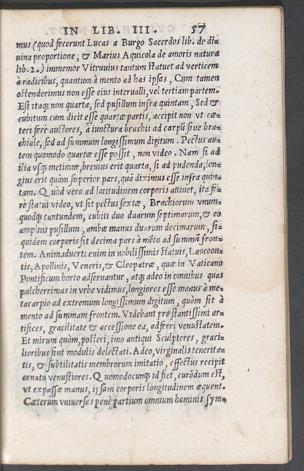 IN LIB. III. 57
mus (quod fecerunt Lucas a Burgo Sacerdos lib. de di⸗
uina proportione, & Marius Aquicola de amoris natura
lib. 2.) immemor Vitruuius tantum statuet ad verticem
à radicibus, quantum à mento ad has ipsas, Cum tamen
ostenderimus non esse eius interualli, vel tertiam partem.
Est itaq; non quarta, sed pusillum infra quintam, Sed &
cubitum cum dicit esse quartæ partis, accipit non vt cæ⸗
teri fere auctores, à iunctura brachij ad carpū siue bra⸗
chiale, sed ad summum longissimum digitum. Pectus au⸗
tem quomodo quartæ esse possit, non video. Nam si ad
ilia vsq; metimur, breuius erit quarta, si ad pudenda, lon⸗
gius erit quàm superior pars, quā diximus esse infra quin⸗
tam. Quòd vero ad latitudinem corporis attinet, ita fe⸗
rè statū video, vt sit pectus sextæ, Brachiorum vnum⸗
quodq; tantundem, cubiti duo duarum septimarum, & eo
amplius pusillum, ambæ manus duarum decimarum, si⸗
quidem corporis sit decima pars à mēto ad summā fron⸗
tem. Animaduerti enim in nobilissimis statuis, Laocoon⸗
tis, Apollinis, Veneris, & Cleopatræ, quæ in Vaticano
Pontificum horto adseruantur, atq; adeo in omnibus quas
pulcherrimas in vrbe vidimus, longiores esse manus à me⸗
tacarpio ad extremum longissimum digitum, quàm sit à
mento ad summam frontem. Videbant præstantissimi ar⸗
tifices, gracilitate & accessione ea, adferri venustatem.
Et mirum quàm, posteri, imo antiqui Sculptores, graci⸗
lioribus sint modulis delectati. Adeo, virginalis teneritu⸗
tis, & subtilitatis membrorum imitatio, effectus recipit
ornatu venustiores. Quomodocunq; id fiet, curādum est,
vt expassæ manus, ipsam corporis longitudinem æquent.
Cæterum vniuersas penè partium omnium hominis sym⸗